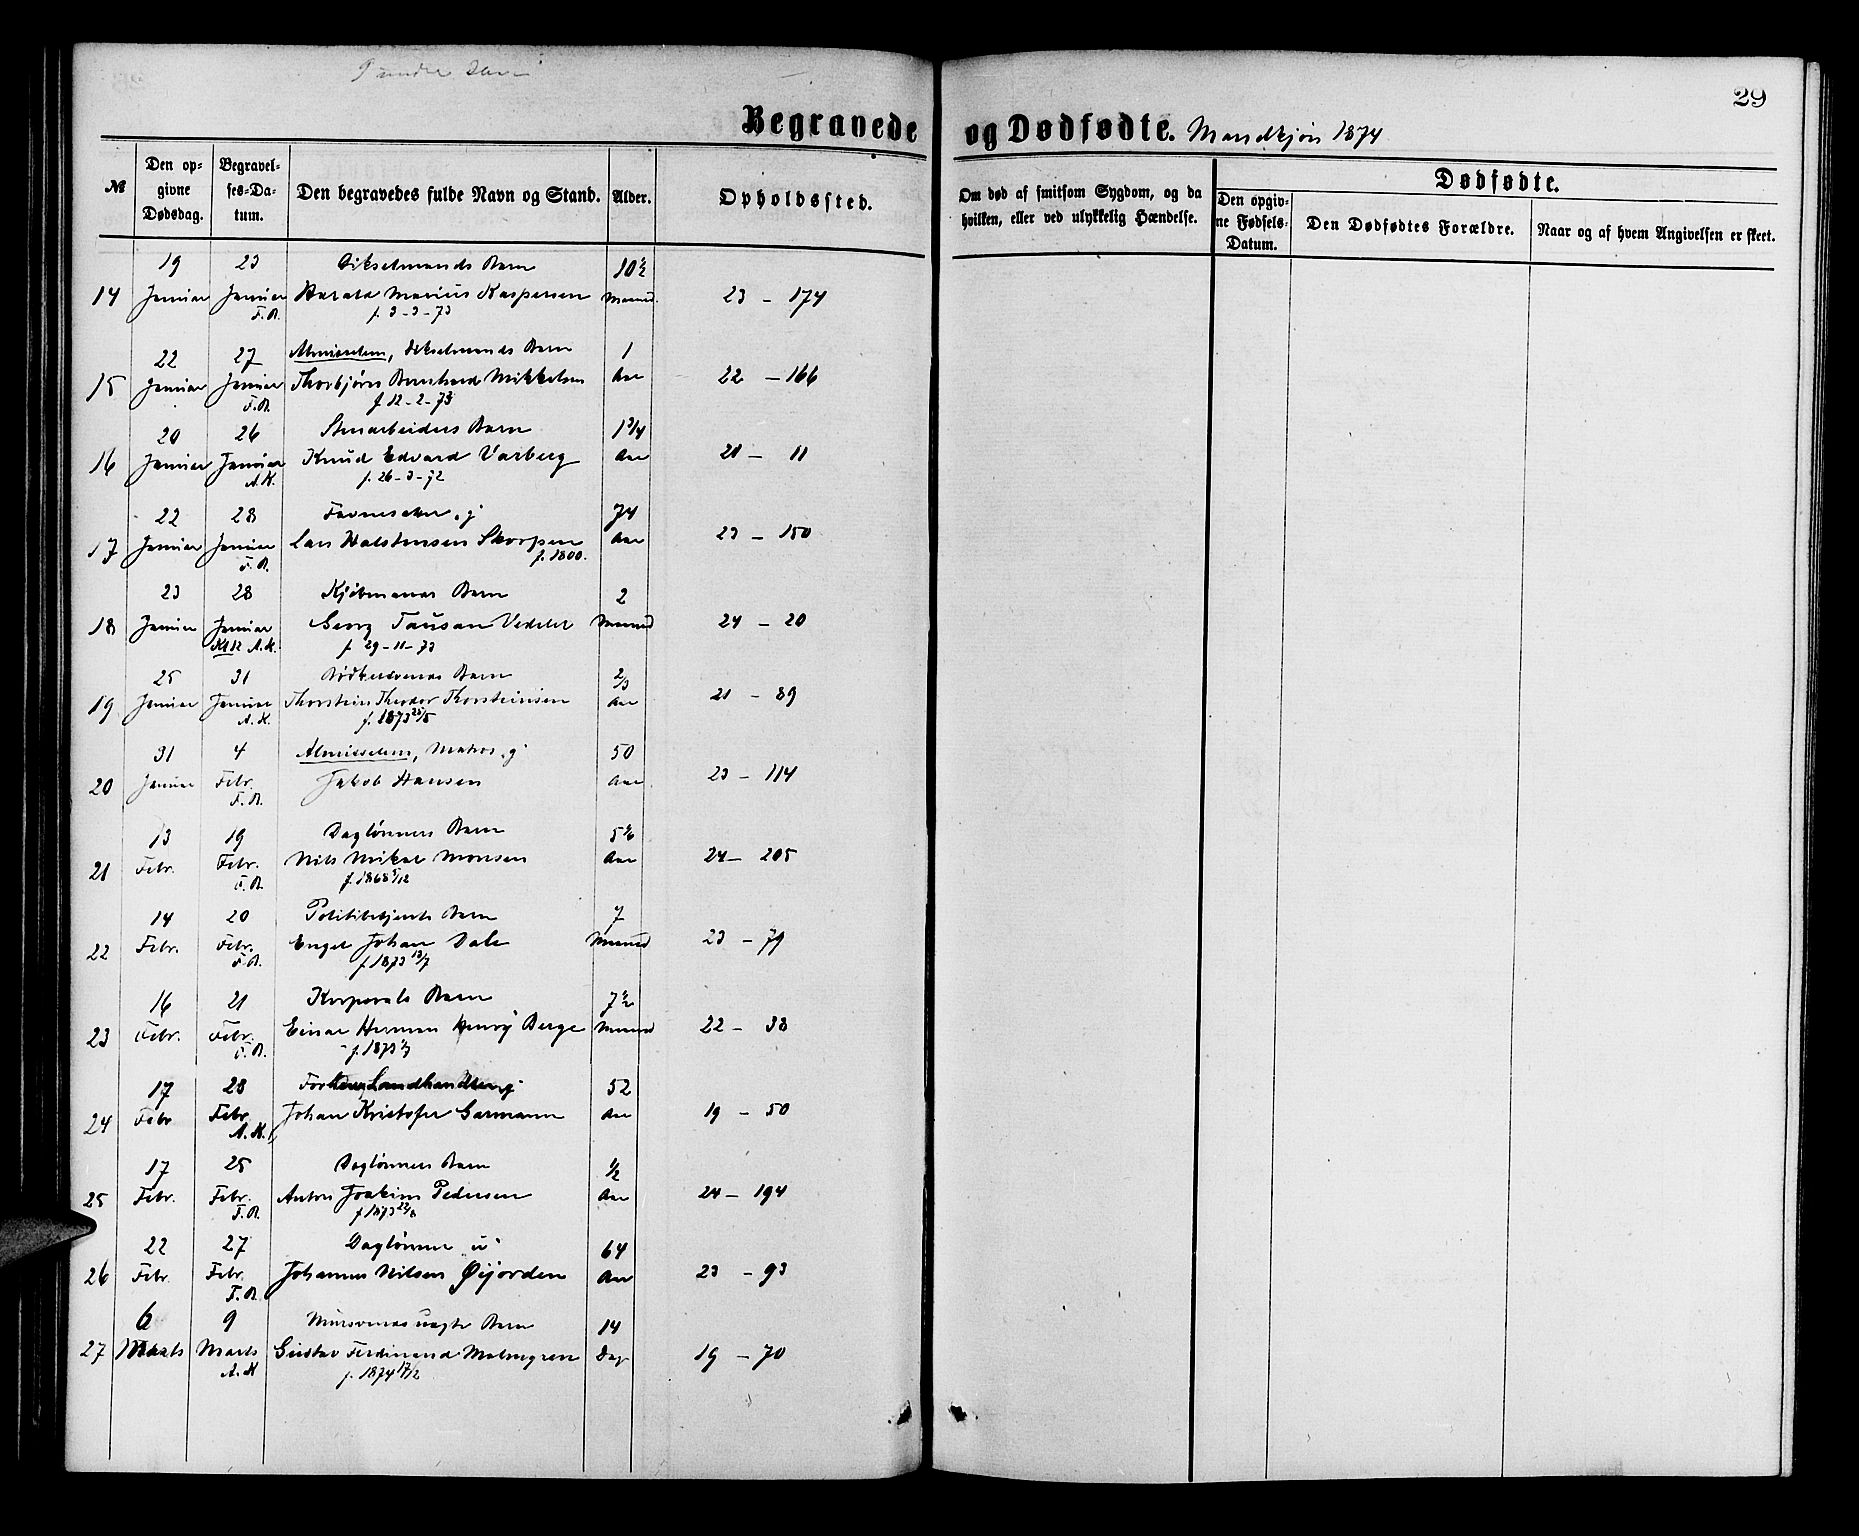 29
Begravede og Dødfødte. Mandkjøn 1874
№
Den opgivne Dødsdag.
Begravelses-Datum.
Den begravedes fulde Navn og Stand.
Alder.
Opholdssted.
Om død af smitsom Sygdom, og da hvilken, eller ved ulykkelig Hændelse.
Dødfødte.
Den opgivne Fødsels-Datum.
Den Dødfødtes Forældre.
Naar og af hvem Angivelsen er skeet.
19 23 Barn 10½
14 Januar Januar Harald Marius Kaspersen Maaned. 23 - 174
F.B. f. 3-3-73
22 27 Almisselem, Barn 1
15 Januar Januar Thorbjørn Bernhard Mikkelsen Aar 22 - 166
F.B. f 12-2-73
20 26 Stenarbeiders Barn 1¾
16 Januar Januar Knud Edvard Varberg Aar 21 - 11
A.K. f. 26-3-72
22 28 g 74
17 Januar Januar Lars Halstensen Skorpen Aar 23 - 150
F.B. f. 1800.
23 28 Kjøbmands Barn 2
18 Januar Januar Georg Tausan Vedeler Maaned 24 - 20
A.K. f 29-11-73
25 31 Bødkersvends Barn 2/3
19 Januar Januar Thorstein Theodor Thorsteinsen Aar 21 - 89
A.K. f. 1873 25/5
31 4 Almisselem, Matros, g 50
20 Januar Febr. Jakob Hansen Aar 23 - 114
F.B.
13 19 Dagløners Barn 5 1/6
21 Febr. Febr. Nils Mikal Monsen Aar 24 - 205
F.B. f. 1868 5/12
14 20 Politibetjents Barn 7
22 Febr. Febr. Engel Johan Dale Maaned 23 - 79
F.B. f. 1873 13/7
16 21 Korporals Barn 7½
23 Febr. Febr. Einar Herman Henrÿ Berge Maaned 22 - 38
F.B. f. 1873
17 28 Landhandler g 52
24 Febr Febr. Johan Kristofer Garmann Aar 19 - 50
A.K.
17 25 Dagløners Barn ½
25 Febr. Febr. Anton Joakim Pedersen Aar 24 - 194
F.B. f 1873 22/8
22 27 Dagløner u 64
26 Febr. Febr. Johannes Nilsen Øijorden Aar 23 - 93
F.B.
6 9 Mursvends uægte Barn 14
27 Marts Marts Gustav Ferdinand Malmgren Dage 19 - 70
A.K f. 1874 17/2